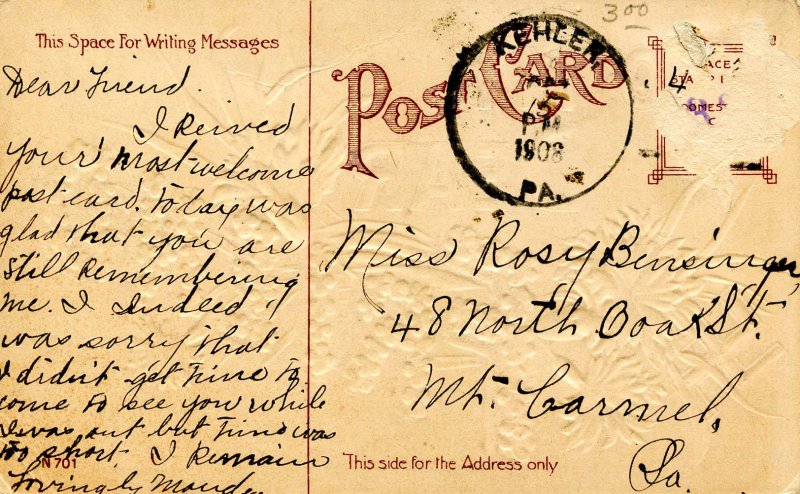 This Space For Writing Messages
Dear Friend.
I Reived
your most welcome
post card. Today was
glad that you are
still Remembering
me. I Indeed I
was sorry that
I didn't get Time To
come To see you while
I was out but Time was
To short. I Remain
Lovingly
N 701
POST CARD
KEHLEY,
P.M
1908
PA.
3 00
PLACE
STAMP
4
DOMEST
C
Miss Rosy Bensinger,
48 North Ooak St.
Mt. Carmel,
Pa.
This side for the Address only